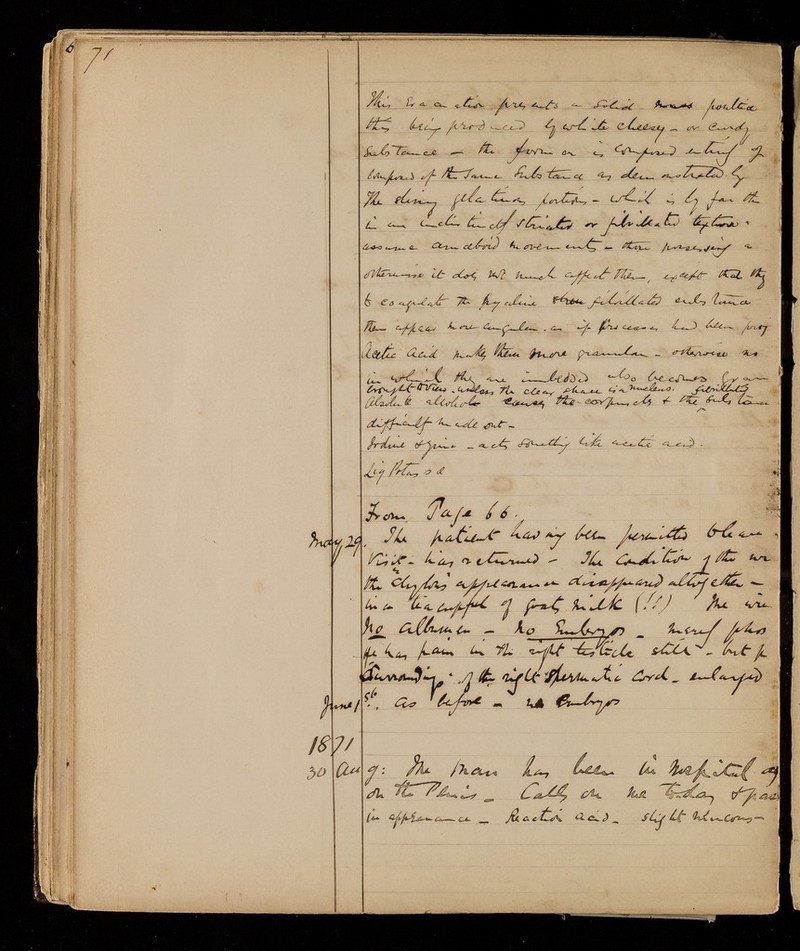 71
This presents a solid mass
being produced by white cheesy - or curdy
substance - the former is composed entirely of
composed of the same substance as demonstrated by
The slimy gelatinous portions - which is by far the
in an indistinctly striated or fibrillated texture -
assume amoeboid movements - others possessing a
otherwise it does not much affect them, except that they
to coagulate the hyaline fibrillated substance
them appear more angular. as if processes had been
Acetic acid makes them more granular - otherwise no
in which they are imbedded also becomes
brought to view. unless the clear
Absolute alcohol causes the corpuscles & the fibrillated substance
difficultly made out -
Iodine & - acts something like acetic acid.
Liq Potassae
From Page 66.
May 29. The patient having been permitted to leave
visit - has returned - The condition of the
the "chylous" appearance disappeared altogether -
in a teacupful of goats milk (!!) The
No albumen - No Embryos - merely
He has pain in the right testicle still - but
surrounding of the right spermatic cord - enlarged
June 1st. as before - no Embryos
1871
30 Aug: The man has been in Hospital
on the Penis - Calls on me today &
in appearance - Reaction acid - slight